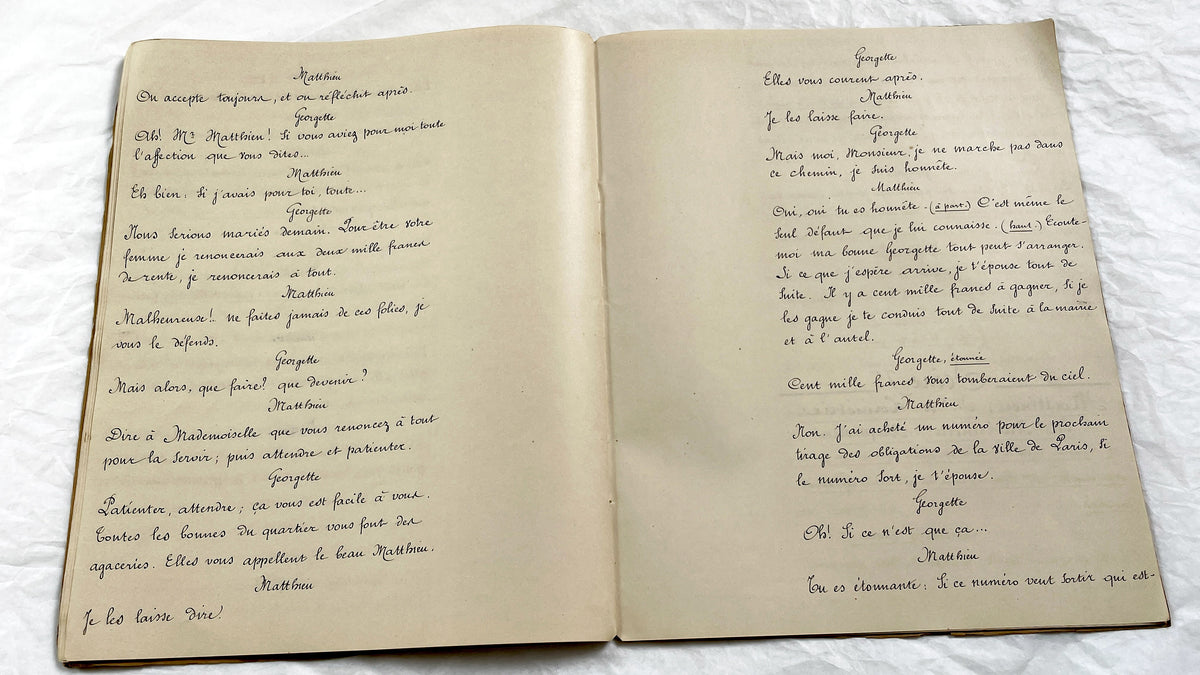 Matthieu
On accepte toujours, et on réfléchit après.
Georgette
Ah! Mr Matthieu! Si vous aviez pour moi toute
l'affection que vous dites...
Matthieu
Eh bien: Si j'avais pour toi, toute...
Georgette
Nous serions mariés demain. Pour être votre
femme je renoncerais aux deux mille francs
de rente, je renoncerais à tout.
Matthieu
Malheureuse!.. ne faites jamais de ces folies, je
vous le défends.
Georgette
Mais alors, que faire? que devenir?
Matthieu
Dire à Mademoiselle que vous renoncez à tout
pour la servir; puis attendre et patienter.
Georgette
Patienter, attendre; ça vous est facile à vous.
Toutes les bonnes du quartier vous font des
agaceries. Elles vous appellent le beau Matthieu.
Matthieu
Je les laisse dire!
Georgette
Elles vous courent après.
Matthieu
Je les laisse faire.
Georgette
Mais moi, Monsieur, je ne marche pas dans
ce chemin, je suis honnête.
Matthieu
Oui, oui tu es honnête. (à part.) C'est même le
seul défaut que je lui connaisse. (haut.) Ecoute-
moi ma bonne Georgette tout peut s'arranger.
Si ce que j'espère arrive, je t'épouse tout de
suite. Il y a cent mille francs à gagner, si je
les gagne je te conduis tout de suite à la mairie
et à l'autel.
Georgette, étonnée
Cent mille francs vous tomberaient du ciel.
Matthieu
Non. J'ai acheté un numéro pour le prochain
tirage des obligations de la ville de Paris, si
le numéro sort, je t'épouse.
Georgette
Oh! Si ce n'est que ça...
Matthieu
Tu es étonnante: Si ce numéro veut sortir qui est-